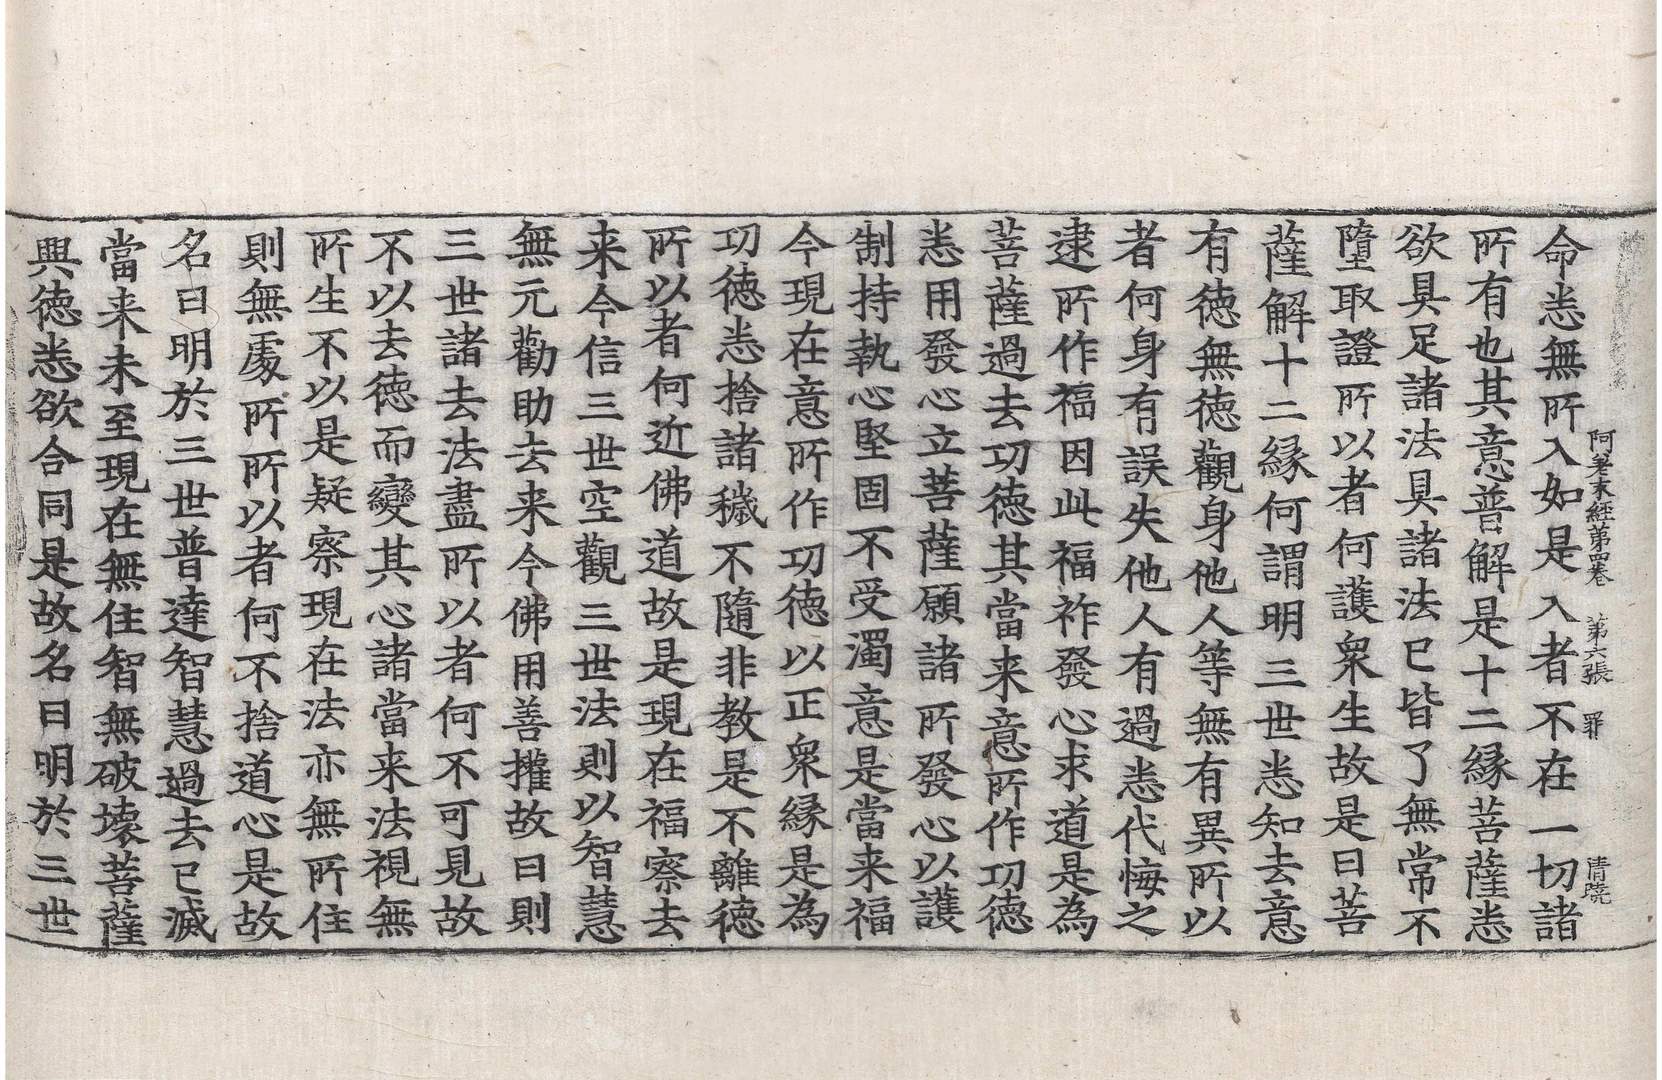 阿差末經第四卷　第六張　罪　清曉
命悉無所入如是入者不在一切諸
所有也其意普解是十二緣菩薩悉
欲具足諸法具諸法已皆了無常不
墮取證所以者何護衆生故是曰菩
薩解十二緣何謂明三世悉知去意
有德無德觀身他人等無有異所以
者何身有誤失他人有過悉代悔之
逮所作福因此福祚發心求道是為
菩薩過去功德其當来意所作功德
悉用發心立菩薩願諸所發心以護
制持執心堅固不受濁意是當来福
今現在意所作功德以正衆緣是為
功德悉捨諸穢不隨非教是不離德
所以者何近佛道故是現在福察去
来今信三世空觀三世法則以智慧
無元勸助去来今佛用善權故曰則
三世諸去法盡所以者何不可見故
不以去德而變其心諸當来法視無
所生不以是疑察現在法亦無所住
則無處所所以者何不捨道心是故
名曰明於三世普達智慧過去已滅
當来未至現在無住智無破壞菩薩
興德悉欲合同是故名曰明於三世